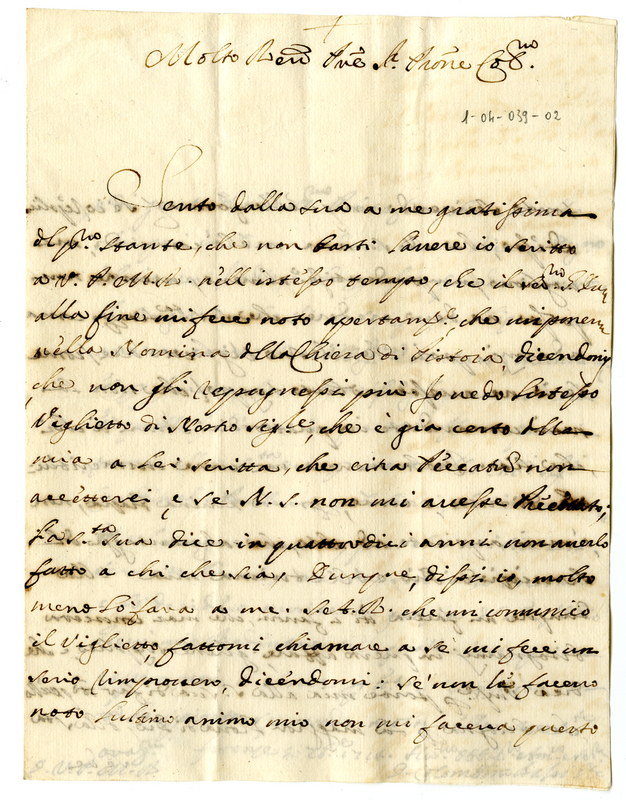 Molto Rev Pre Sr. Prone Co mo.
1-04-039-02
Sento dalla sua a me gratissima
del pmo stante, che non basti l'avere io scritto
a V. P. M. R. nell' istesso tempo, che il Ser mo
alla fine mi fece noto apertamte, che mi poneva
nella Nomina della Chiesa di Pistoia, dicendomi
che non gli repugnassi più. Io vedo l'istesso
Viglietto di Nostro Sigre, che è già certo della
mia a Lei scritta, che citra Peccatũ non
accetterei, e se N. S. non mi avesse Precettato;
La S.ta Sua dice in quattordici anni non averlo
fatto a chi che sia, Dunque, dissi io, molto
meno lo farà a me. S. A. R. che mi comunicò
il Viglietto, fattomi chiamare a se mi fece un
serio rimprovero, dicendomi: se non le facevo
noto l'ultimo animo mio non mi faceva questo